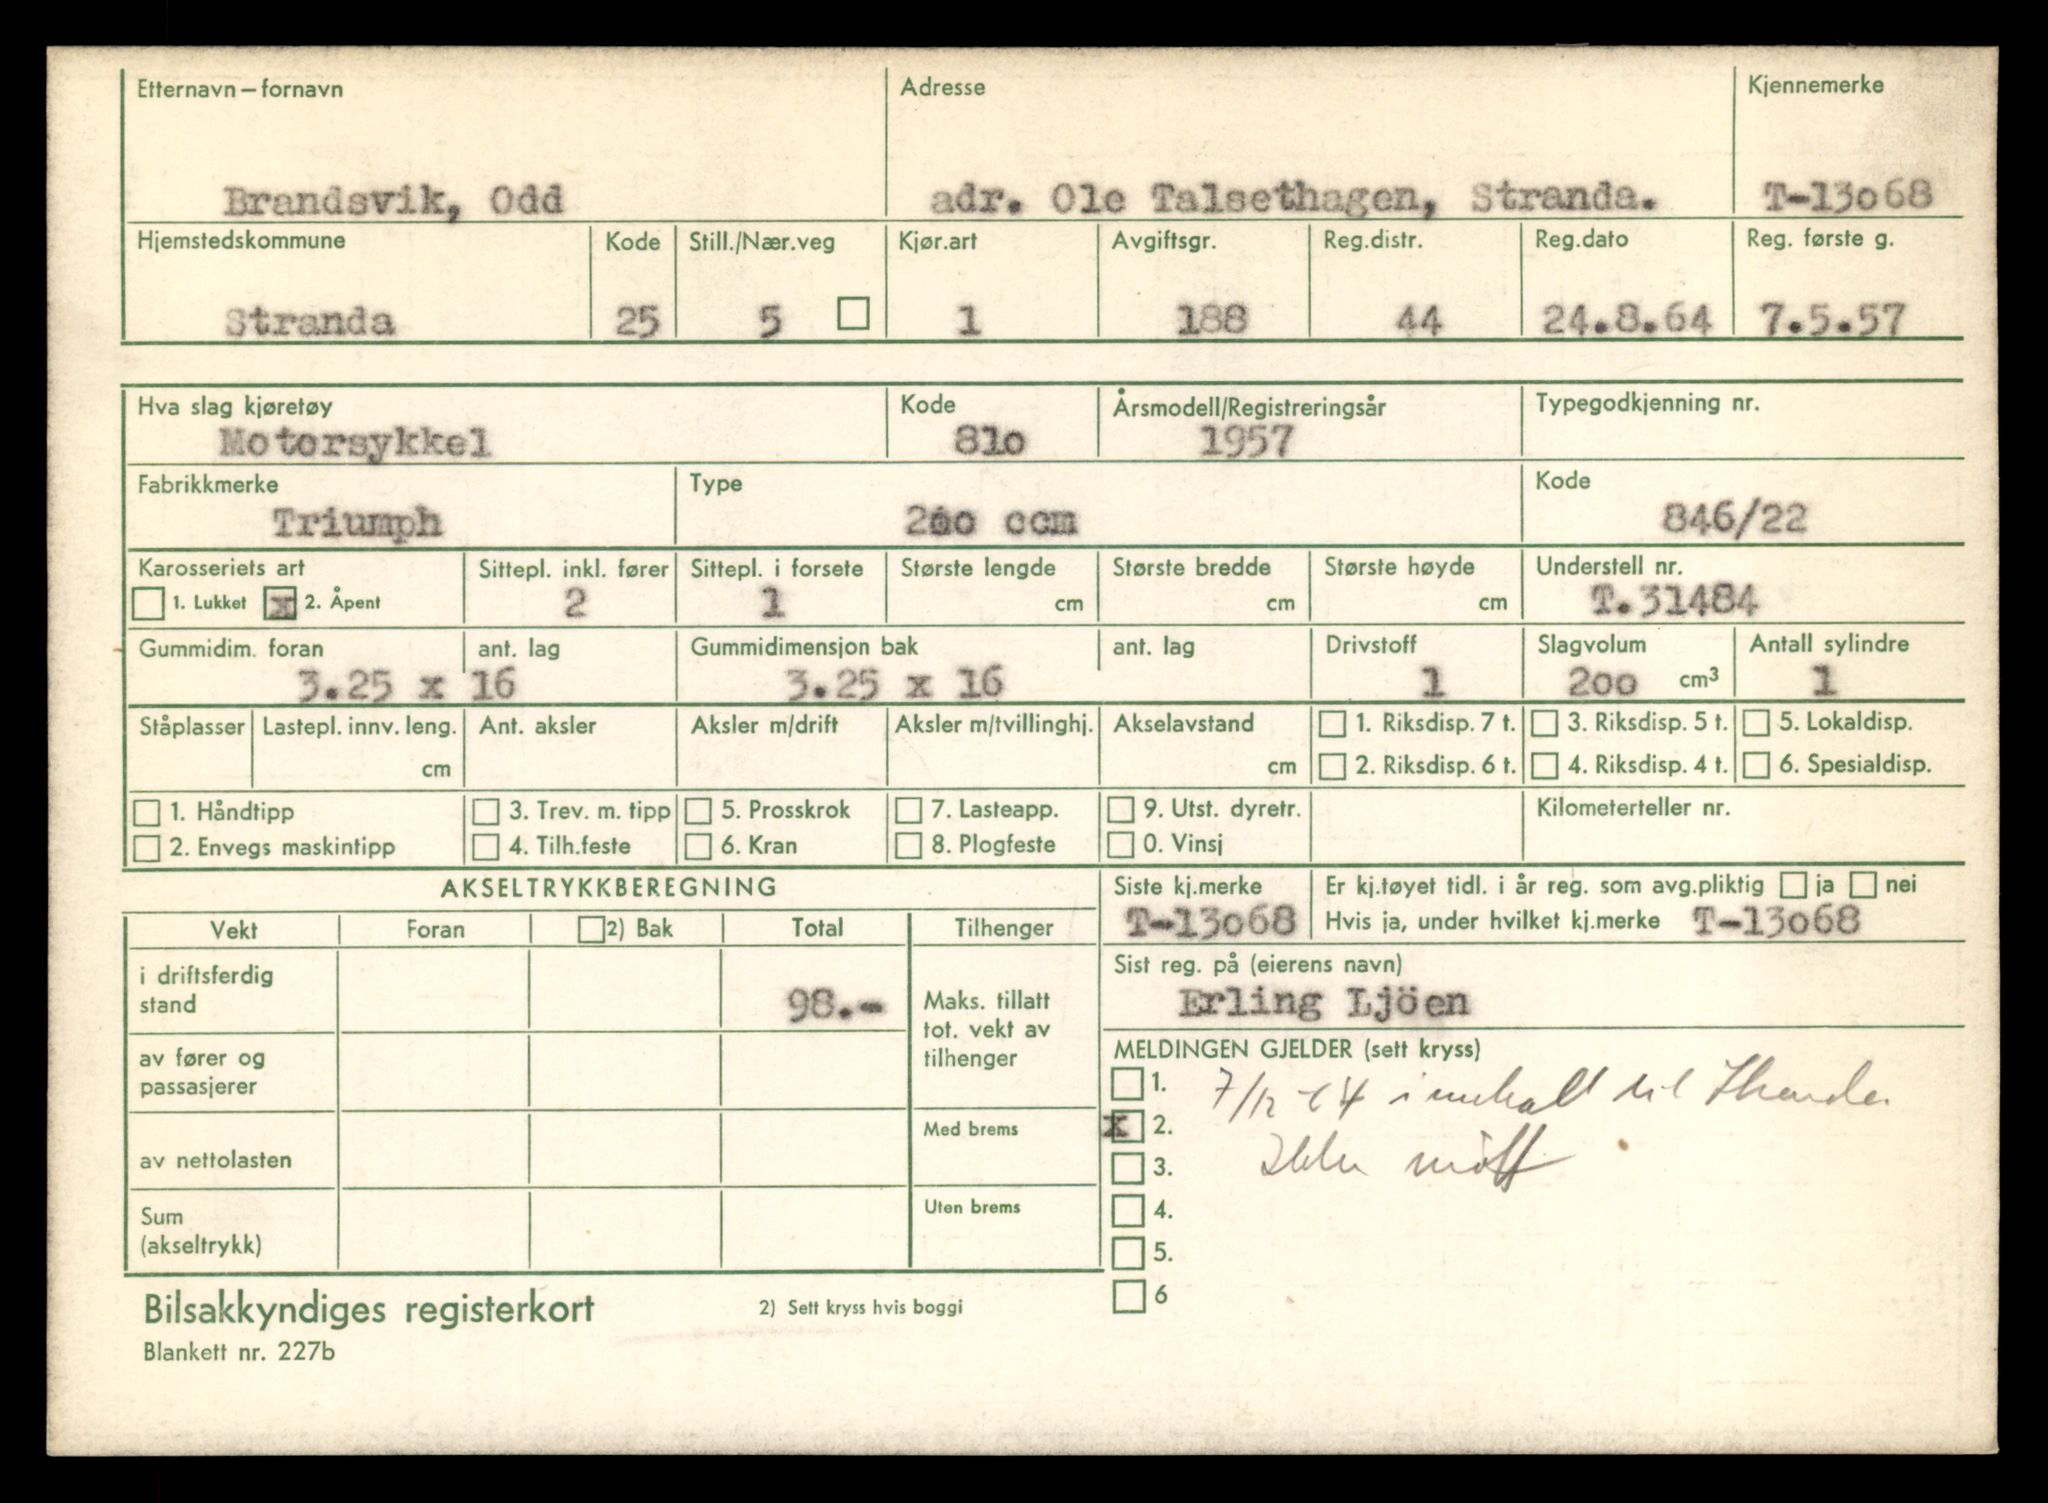 Etternavn – fornavn Adresse Kjennemerke
Brandsvik, Odd adr. Ole Talsethagen, Stranda. T-13o68
Hjemstedskommune Kode Still./Nær.veg Kjør.art Avgiftsgr. Reg.distr. Reg.dato Reg. første g.
Stranda 25 5 1 188 44 24.8.64 7.5.57
Hva slag kjøretøy Kode Årsmodell/Registreringsår Typegodkjenning nr.
Motorsykkel 81o 1957
Fabrikkmerke Type Kode
Triumph 2oo ccm 846/22
Karosseriets art Sittepl. inkl. fører Sittepl. i forsete Største lengde Største bredde Største høyde Understell nr.
1. Lukket x 2. Åpent 2 1 cm cm cm T.31484
Gummidim. foran ant. lag Gummidimensjon bak ant. lag Drivstoff Slagvolum Antall sylindre
3.25 x 16 3.25 x 16 1 2oo cm³ 1
Ståplasser Lastepl. innv. leng. Ant. aksler Aksler m/drift Aksler m/tvillinghj. Akselavstand 1. Riksdisp. 7 t. 3. Riksdisp. 5 t. 5. Lokaldisp.
cm cm 2. Riksdisp. 6 t. 4. Riksdisp. 4 t. 6. Spesialdisp.
1. Håndtipp 3. Trev. m. tipp 5. Prosskrok 7. Lasteapp. 9. Utst. dyretr. Kilometerteller nr.
2. Envegs maskintipp 4. Tilh.feste 6. Kran 8. Plogfeste 0. Vinsj
AKSELTRYKKBEREGNING Siste kj.merke Er kj.tøyet tidl. i år reg. som avg.pliktig ja nei
T-13o68 Hvis ja, under hvilket kj.merke T-13o68
Vekt Foran 2) Bak Total Tilhenger
Sist reg. på (eierens navn)
Erling Ljöen
i driftsferdig
stand 98.-
Maks. tillatt
tot. vekt av
tilhenger
av fører og
passasjerer
MELDINGEN GJELDER (sett kryss)
1. 7/12-64 innkalt til Stranda
x 2.
Ikke møtt
3.
4.
5.
6
Med brems
av nettolasten
Uten brems
Sum
(akseltrykk)
Bilsakkyndiges registerkort 2) Sett kryss hvis boggi
Blankett nr. 227b